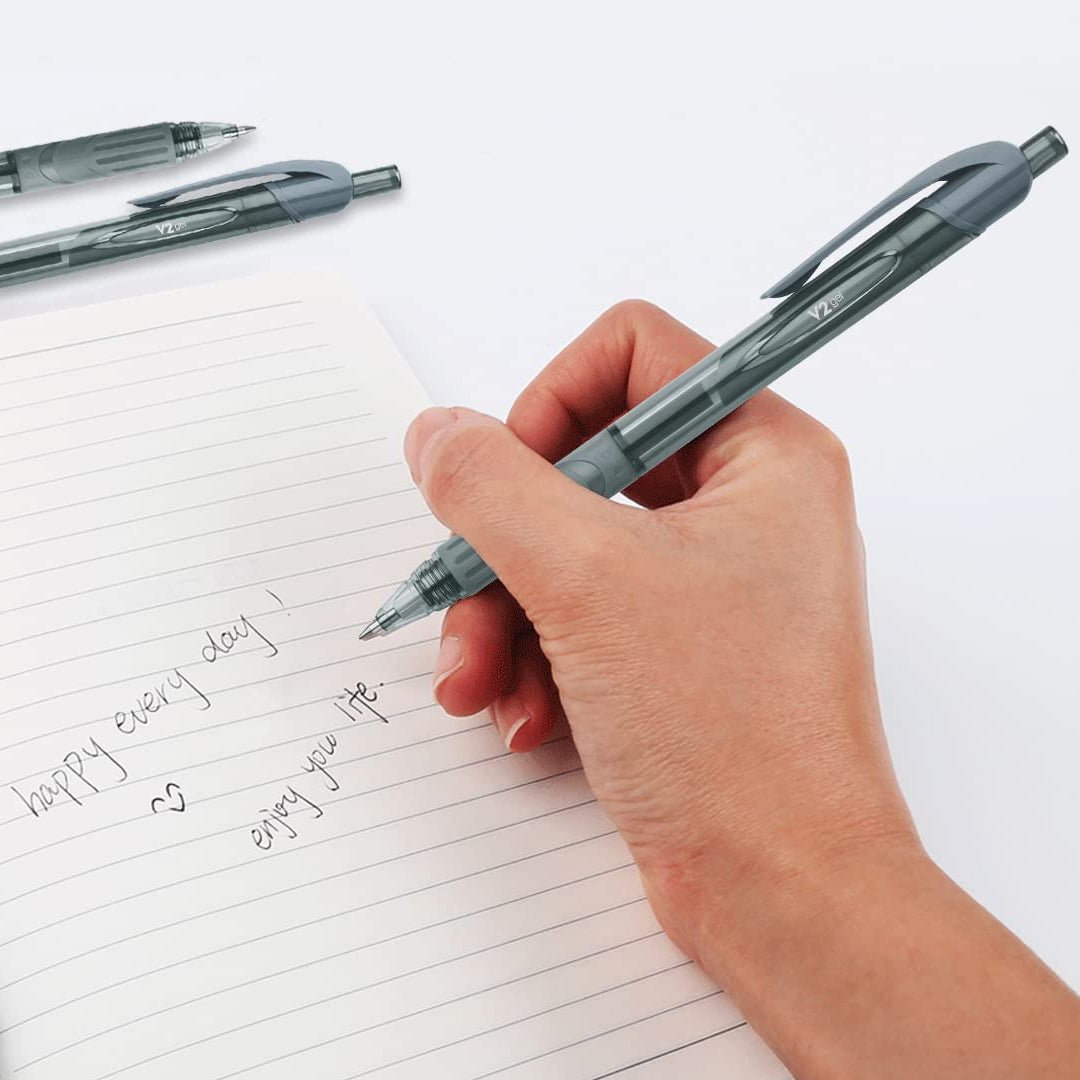 V2 gel
V2 gel
happy every day!
enjoy you life.